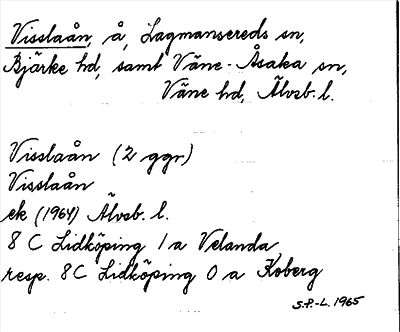 Visslaån, å, Lagmansereds sn,
Bjärke hd, samt Väne-Åsaka sn,
Väne hd, Älvsb. l.
Visslaån (2 ggr)
Visslaån
ek (1964) Älvsb. l.
8 C Lidköping 1 a Velanda
resp. 8C Lidköping 0 a Koberg
S.P.-L. 1965